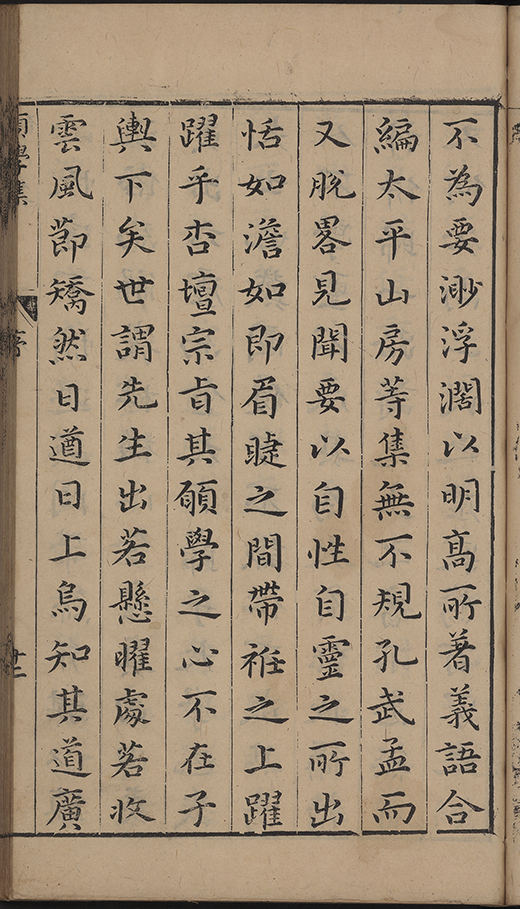 不為要渺浮濶以明高所著義語合
編太平山房䓁集無不規孔武孟而
又脫畧見聞要以自性自靈之所出
恬如澹如即眉睫之間帶袵之上躍
躍乎杏壇宗㫖其願學之心不在子
輿下矣世謂先生出若懸曜處若收
雲風節矯然日遒日上烏知其道廣
願學集
序